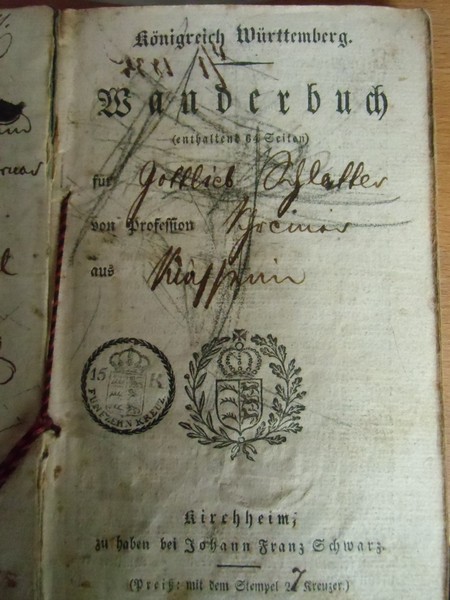 Königreich Württemberg.
Wanderbuch
(enthaltend 64 Seiten)
für Gottlieb Schlatter
von Profession Schreiner
aus
15 K
FÜNFZEHN KREUZ
Kirchheim,
zu haben bei Johann Franz Schwarz.
(Preiß: mit dem Stempel 27 Kreuzer.)